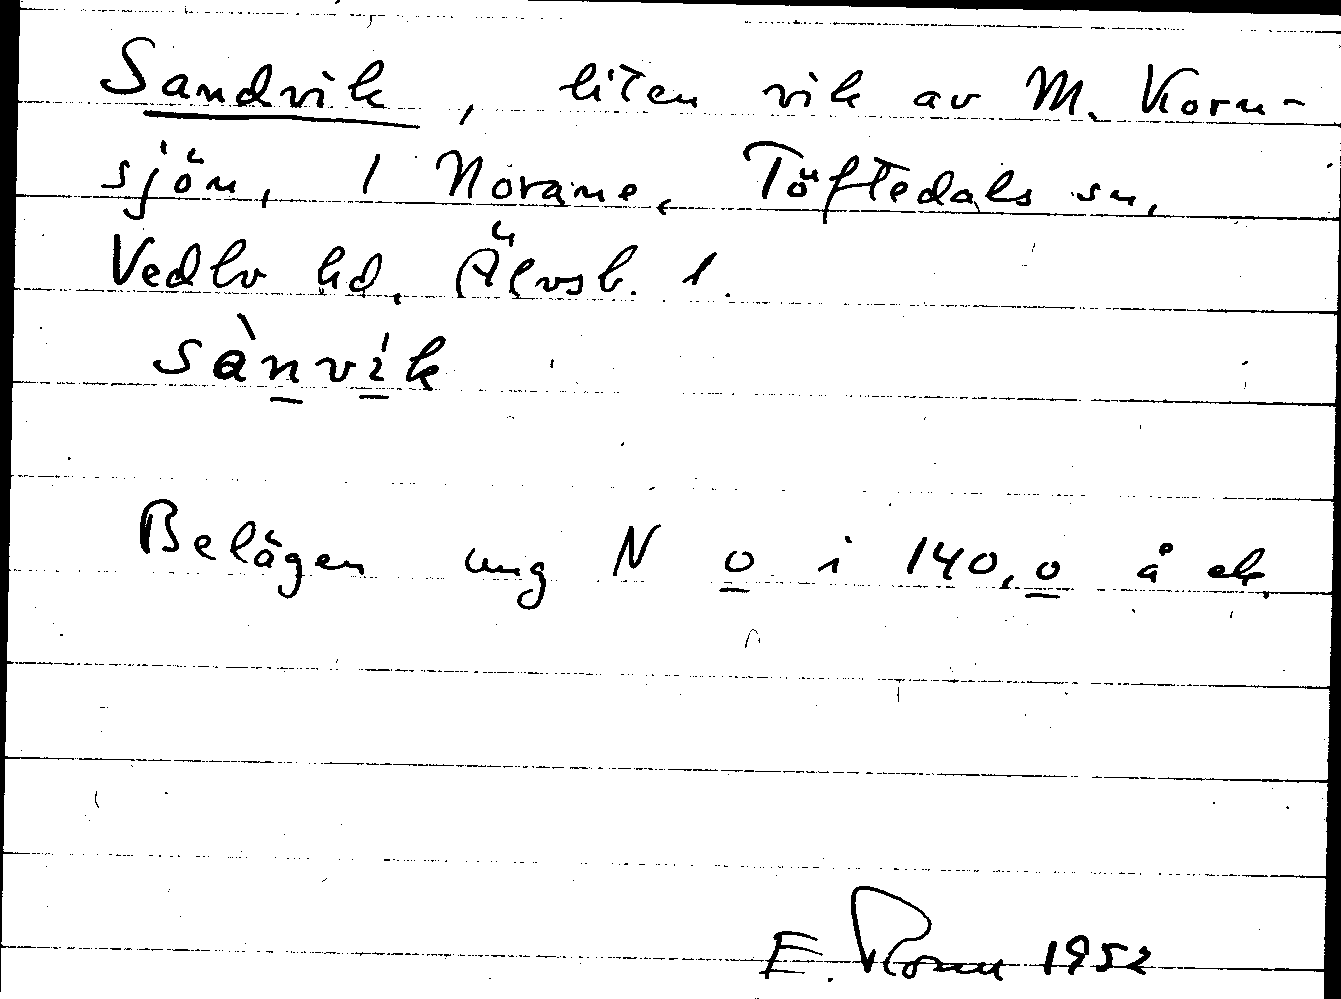 Sandvik, liten vik av M. Korn-
sjön, 1 Norane, Töftedals sn,
Vedbo hd, Älvsb. l.
sànvik
Belägen ung N o i 140,o å ek.
E. 1952